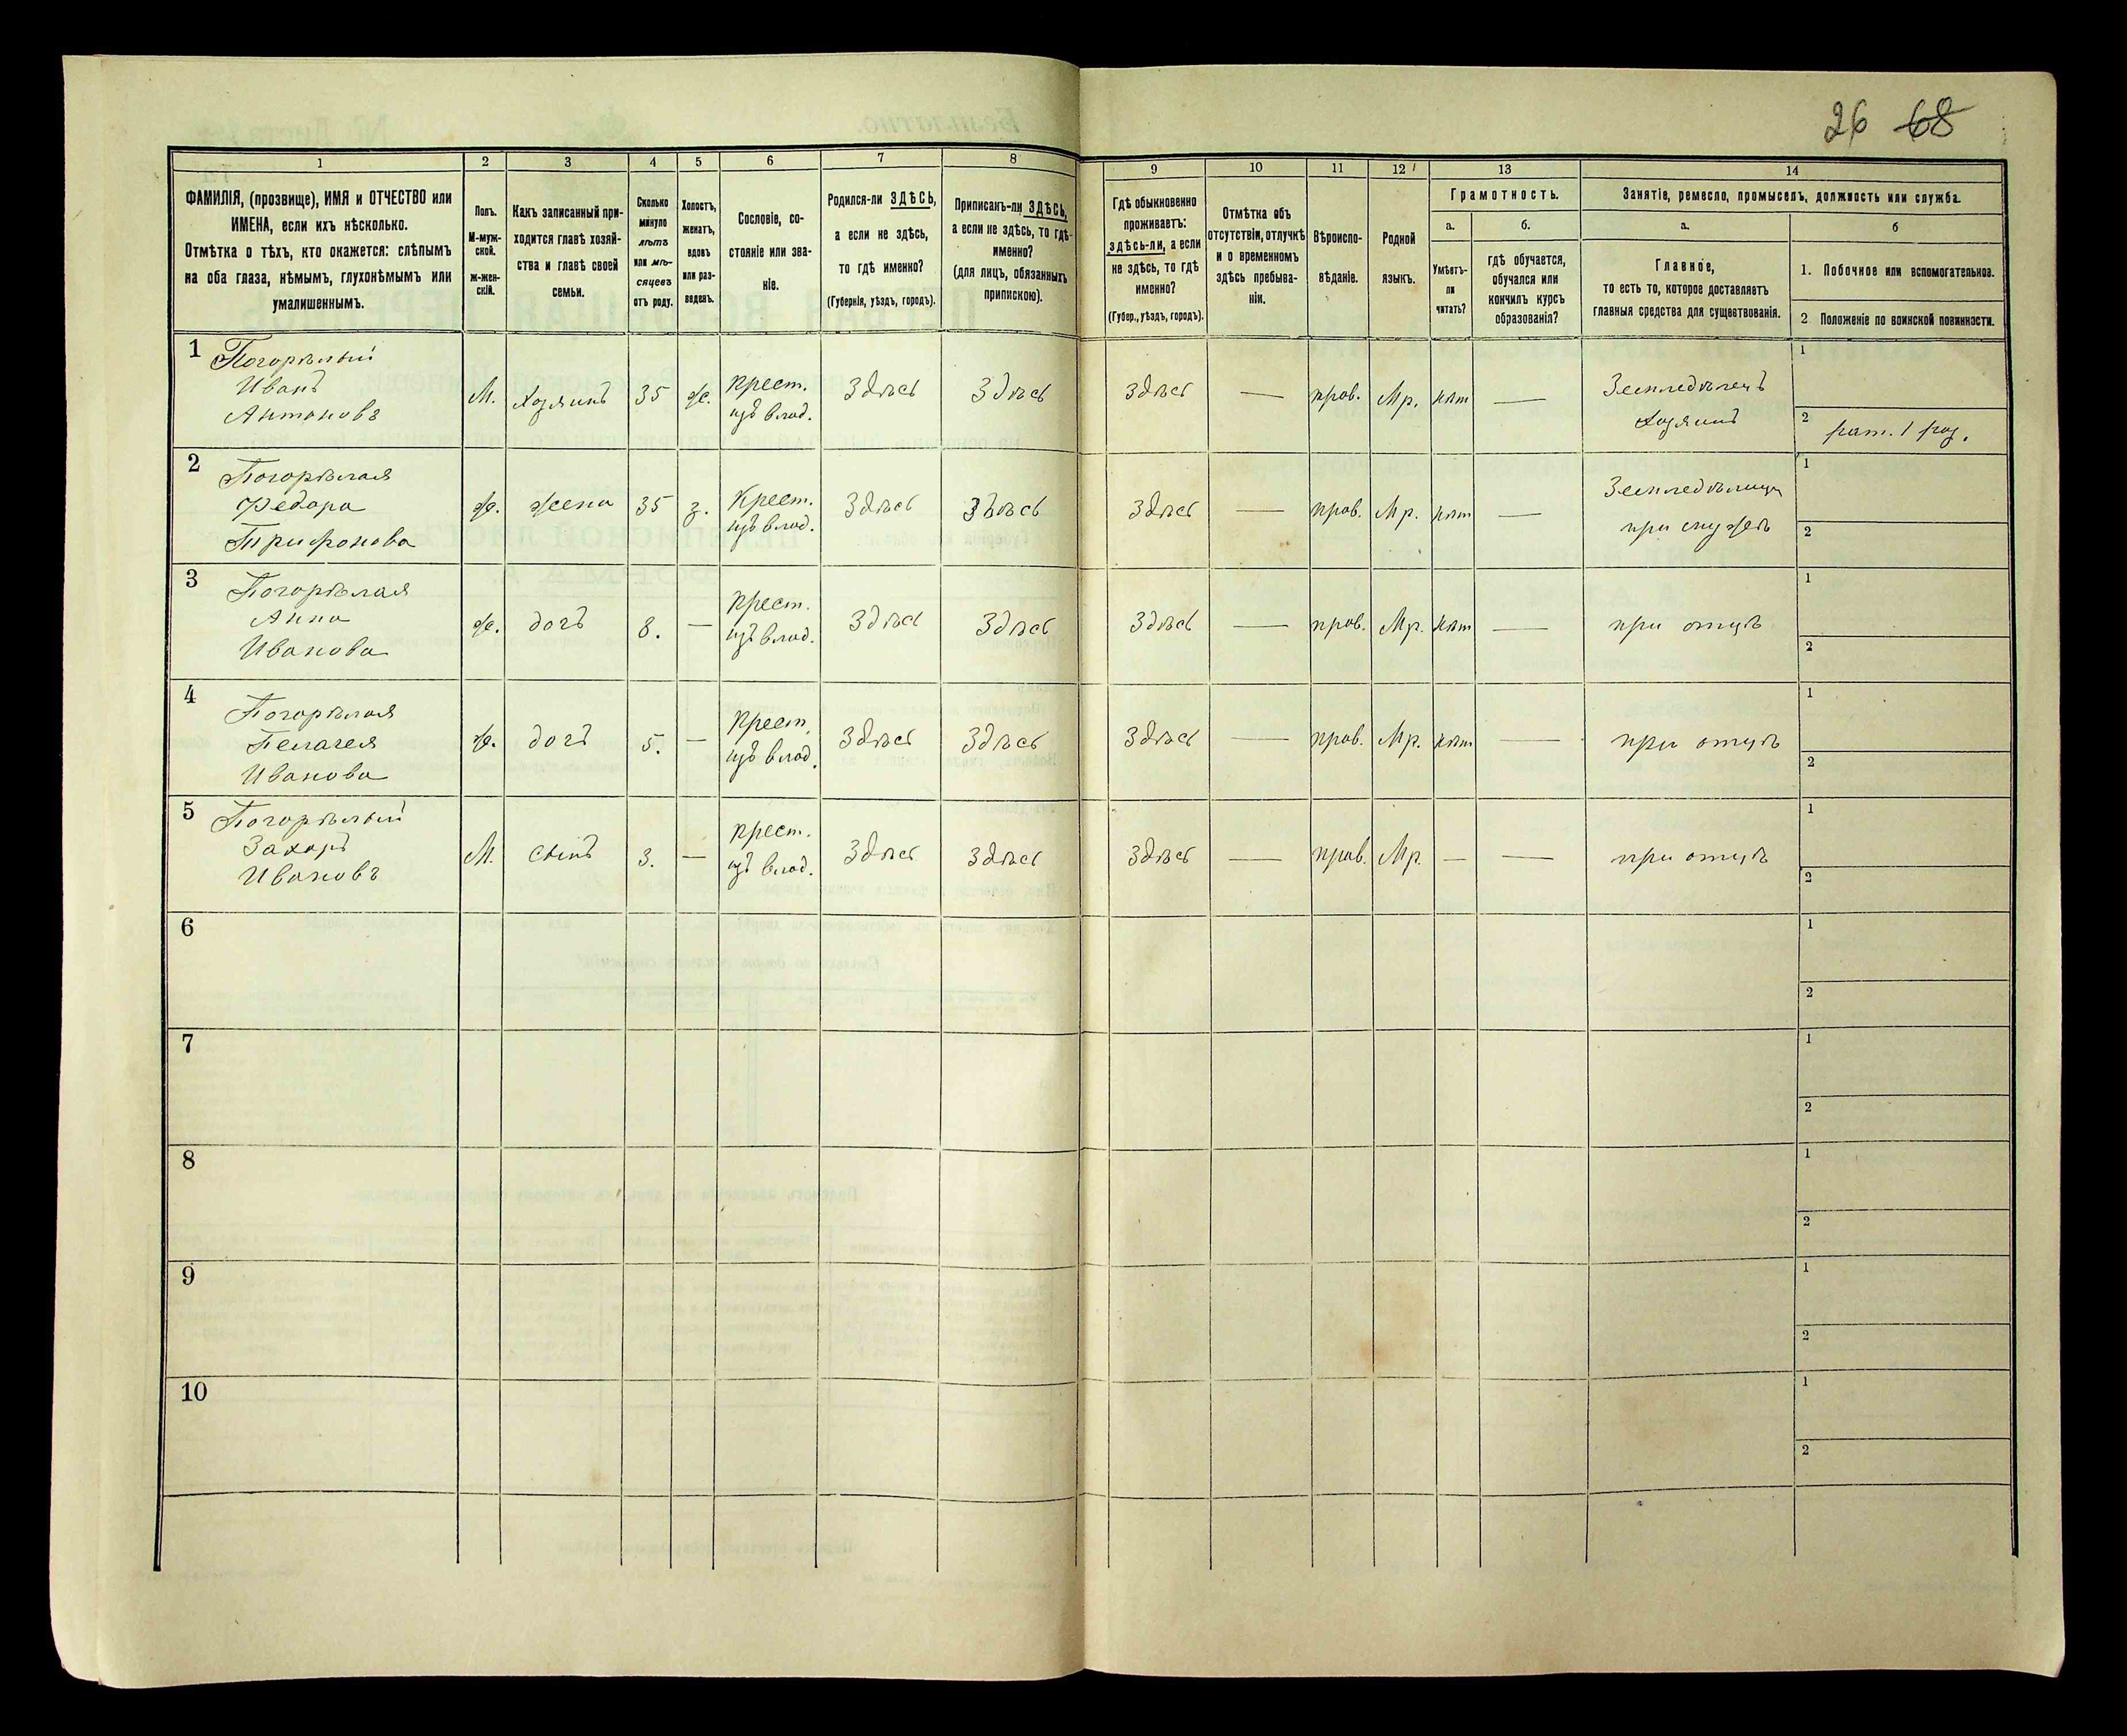 26 68
1 2 3 4 5 6 7 8 9 10 11 12 13 14
ФАМИЛІЯ, (прозвище), ИМЯ и ОТЧЕСТВО или
ИМЕНА, если ихъ нѣсколько.
Отмѣтка о тѣхъ, кто окажется: слѣпымъ
на оба глаза, нѣмымъ, глухонѣмымъ или
умалишеннымъ.
Полъ.
М-муж-
ской.
ж-жен-
скій.
Какъ записанный при-
ходится главѣ хозяй-
ства и главѣ своей
семьи.
Сколько
минуло
лѣтъ
или мѣ-
сяцевъ
отъ роду.
Холостъ,
женатъ,
вдовъ
или раз-
веденъ.
Сословіе, со-
стояніе или зва-
ніе.
Родился-ли ЗДѢСЬ,
а если не здѣсь,
то гдѣ именно?
(Губернія, уѣздъ, городъ).
Приписанъ-ли ЗДѢСЬ,
а если не здѣсь, то гдѣ-
именно?
(для лицъ, обязанныхъ
припискою).
Гдѣ обыкновенно
проживаетъ:
здѣсь-ли, а если
не здѣсь, то гдѣ
именно?
(Губер., уѣздъ, городъ).
Отмѣтка объ
отсутствіи, отлучкѣ
и о временномъ
здѣсь пребыва-
ніи.
Вѣроиспо-
вѣданіе.
Родной
языкъ.
Грамотность.
а. б.
Умѣетъ-
ли
читать?
гдѣ обучается,
обучался или
кончилъ курсъ
образованія?
Занятіе, ремесло, промыселъ, должность или служба.
а. б
Главное,
то есть то, которое доставляетъ
главныя средства для существованія.
1. Побочное или вспомогательное.
2 Положеніе по воинской повинности.
1 Погорѣлый
Иванъ
Антоновъ
М. хозяинъ 35 ж.
крест.
изъ влад.
Здѣсь Здѣсь здѣсь — прав. Мр. нѣт —
Земледѣлецъ
хозяинъ
1
2 рат. 1 раз.
2 Погорѣлая
Федора
Трифонова
ж. жена 35 з.
Крест.
изъ влад.
Здѣсь Здѣсь Здѣсь — прав. Мр. нѣт —
Земледѣлица
при мужѣ
1
2
3 Погорѣлая
Анна
Иванова
ж. дочь 8. —
крест.
изъ влад.
Здѣсь Здѣсь Здѣсь — прав. Мр. нѣт — при отцѣ
1
2
4 Погорѣлая
Пелагея
Иванова
ж. дочь 5. —
крест.
изъ влад.
Здѣсь Здѣсь Здѣсь — прав. Мр. нѣт — при отцѣ
1
2
5 Погорѣлый
Захаръ
Ивановъ
М. сынъ 3. —
крест.
изъ влад.
Здѣсь Здѣсь Здѣсь — прав. Мр. — — при отцѣ
1
2
6
1
2
7
1
2
8
1
2
9
1
2
10
1
2